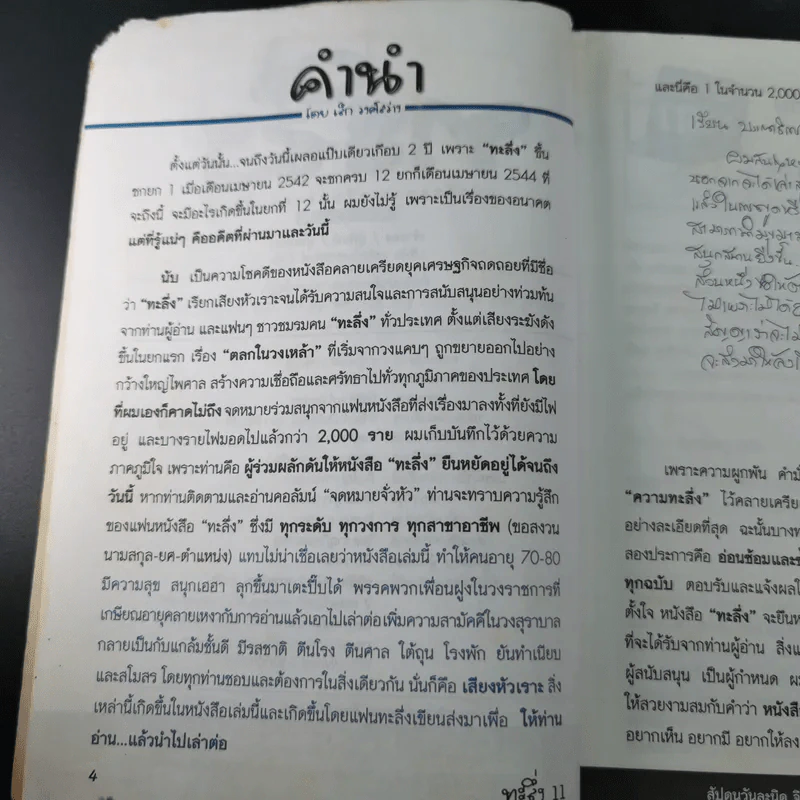 คำนำ
โดย
ตั้งแต่วันนั้น...จนถึงวันนี้เผลอแป๊บเดียวเกือบ 2 ปี เพราะ “ทะลึ่ง” ขึ้น
ชกยก 1 เมื่อเดือนเมษายน 2542 จะชกครบ 12 ยกก็เดือนเมษายน 2544 ที่
จะถึงนี้ จะมีอะไรเกิดขึ้นในยกที่ 12 นั้น ผมยังไม่รู้ เพราะเป็นเรื่องของอนาคต
แต่ที่รู้แน่ๆ คืออดีตที่ผ่านมาและวันนี้
นับ เป็นความโชคดีของหนังสือคลายเครียดยุคเศรษฐกิจถดถอยที่มีชื่อ
ว่า “ทะลึ่ง” เรียกเสียงหัวเราะจนได้รับความสนใจและการสนับสนุนอย่างท่วมท้น
จากท่านผู้อ่าน และแฟนๆ ชาวชมรมคน “ทะลึ่ง” ทั่วประเทศ ตั้งแต่เสียงระฆังดัง
ขึ้นในยกแรก เรื่อง “ตลกในวงเหล้า” ที่เริ่มจากวงแคบๆ ถูกขยายออกไปอย่าง
กว้างใหญ่ไพศาล สร้างความเชื่อถือและศรัทธาไปทั่วทุกภูมิภาคของประเทศ โดย
ที่ผมเองก็คาดไม่ถึง จดหมายร่วมสนุกจากแฟนหนังสือที่ส่งเรื่องมาลงทั้งที่ยังมีไฟ
อยู่ และบางรายไฟมอดไปแล้วกว่า 2,000 ราย ผมเก็บบันทึกไว้ด้วยความ
ภาคภูมิใจ เพราะท่านคือ ผู้ร่วมผลักดันให้หนังสือ “ทะลึ่ง” ยืนหยัดอยู่ได้จนถึง
วันนี้ หากท่านติดตามและอ่านคอลัมน์ “จดหมายจั่วหัว” ท่านจะทราบความรู้สึก
ของแฟนหนังสือ “ทะลึ่ง” ซึ่งมี ทุกระดับ ทุกวงการ ทุกสาขาอาชีพ (ขอสงวน
นามสกุล-ยศ-ตำแหน่ง) แทบไม่น่าเชื่อเลยว่าหนังสือเล่มนี้ ทำให้คนอายุ 70-80
มีความสุข สนุกเฮฮา ลุกขึ้นมาเตะปี๊บได้ พรรคพวกเพื่อนฝูงในวงราชการที่
เกษียณอายุคลายเหงากับการอ่านแล้วเอาไปเล่าต่อเพิ่มความสามัคคีในวงสุราบาล
กลายเป็นกับแกล้มชั้นดี มีรสชาติ ตีนโรง ตีนศาล ใต้ถุน โรงพัก ยันทำเนียบ
และสโมสร โดยทุกท่านชอบและต้องการในสิ่งเดียวกัน นั่นก็คือ เสียงหัวเราะ สิ่ง
เหล่านี้เกิดขึ้นในหนังสือเล่มนี้และเกิดขึ้นโดยแฟนทะลึ่งเขียนส่งมาเพื่อ ให้ท่าน
อ่าน...แล้วนำไปเล่าต่อ
4
ทะลึ่ง 11
และนี่คือ 1 ในจำนวน 2,000
เรียน
เพราะความผูกพัน
“ความทะลึ่ง” ไว้คลายเครีย
อย่างละเอียดที่สุด ฉะนั้นบางท
สองประการคือ อ่อนซ้อมและ
ทุกฉบับ ตอบรับและแจ้งผลใ
ตั้งใจ หนังสือ “ทะลึ่ง” จะยืนห
ที่จะได้รับจากท่านผู้อ่าน สิ่งแ
ผู้สนับสนุน เป็นผู้กำหนด ผม
ให้สวยงามสมกับคำว่า หนังสื
อยากเห็น อยากมี อยากให้ลง
สัปดนวันละนิด จิ